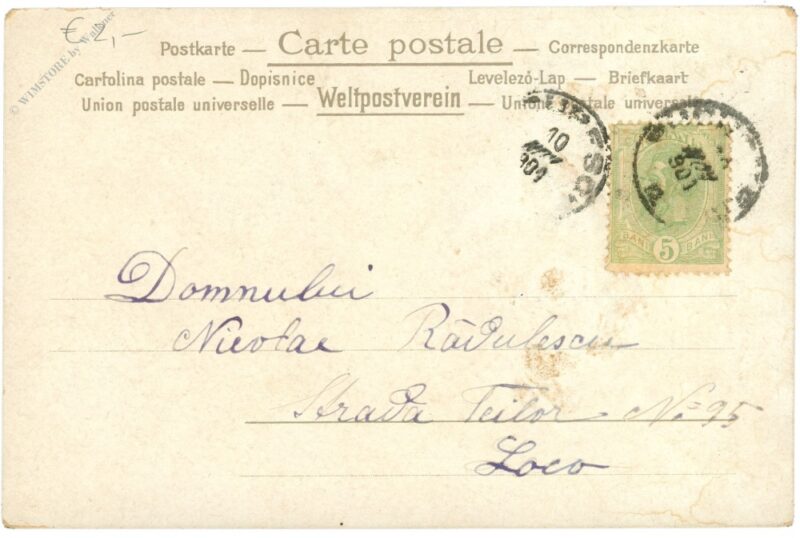 € 2,-
© WIMSTORE by Wallner
Postkarte — Carte postale — Correspondenzkarte
Cartolina postale — Dopisnice Levelező-Lap — Briefkaart
Union postale universelle — Weltpostverein — Union postale universelle
10
5
BANI BANI
Domnului
Nicolae Rădulescu
Strada Teilor No 95
Loco